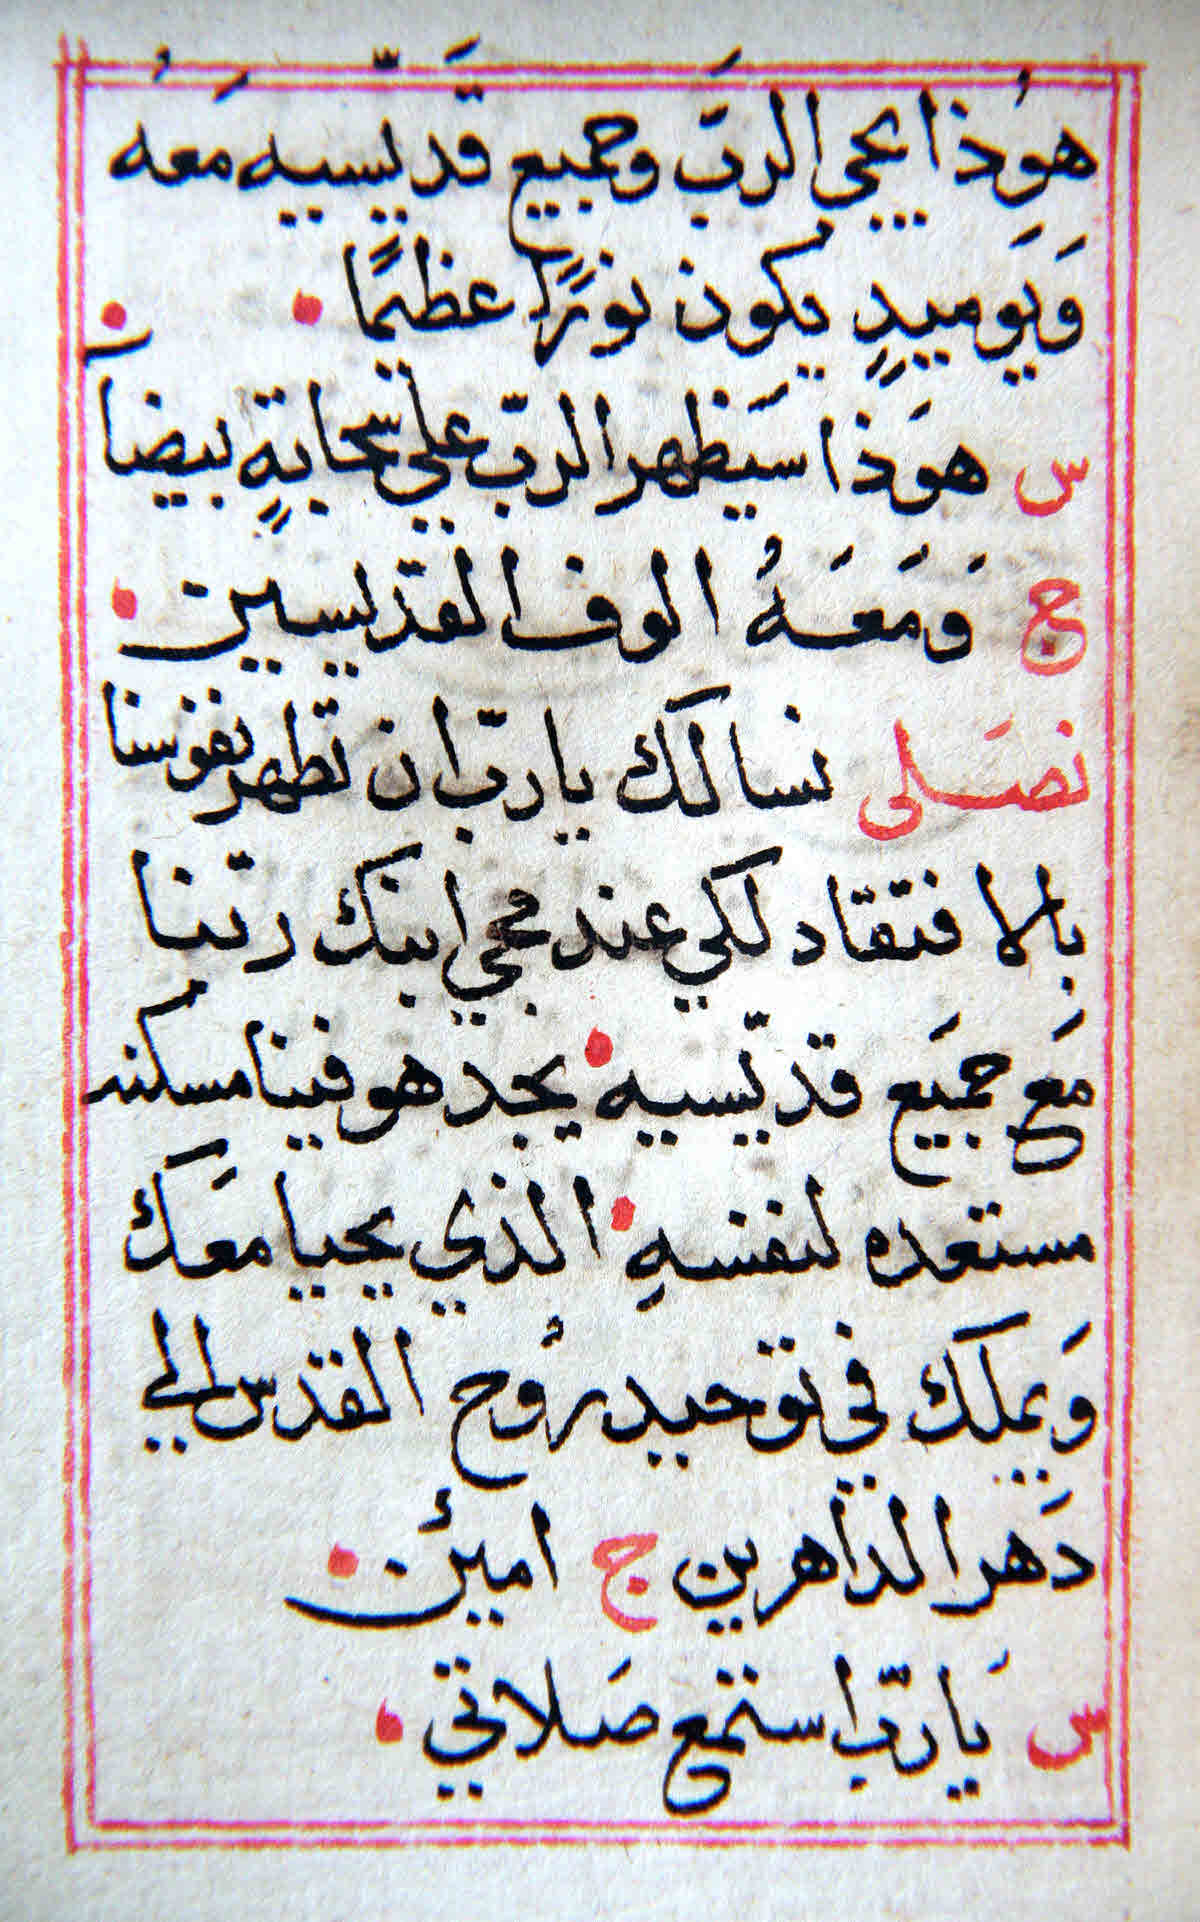 هوُذا يجي الربّ وجميع قدّيسيه مَعهُ
وَيَوميدٍ يكون نورًا عظيمًا
س هوَذا سَيَظهر الربّ علي سحابةٍ بيضا
ج وَمَعَهُ الوف القدّيسين
نصَلي نسالك يا ربّ ان تطهر نفوسنا
بالافتقاد لكي عند مجي ابنك ربّنا
مَع جميَع قدّيسيه يجد هو فينا مسكنه
مستعده لنفسهِ الذي يحيا معَك
وَيملَك في توحيد روُح القدس الي
دَهر الداهرين ج امين
س يا ربّ استمع صَلاتي